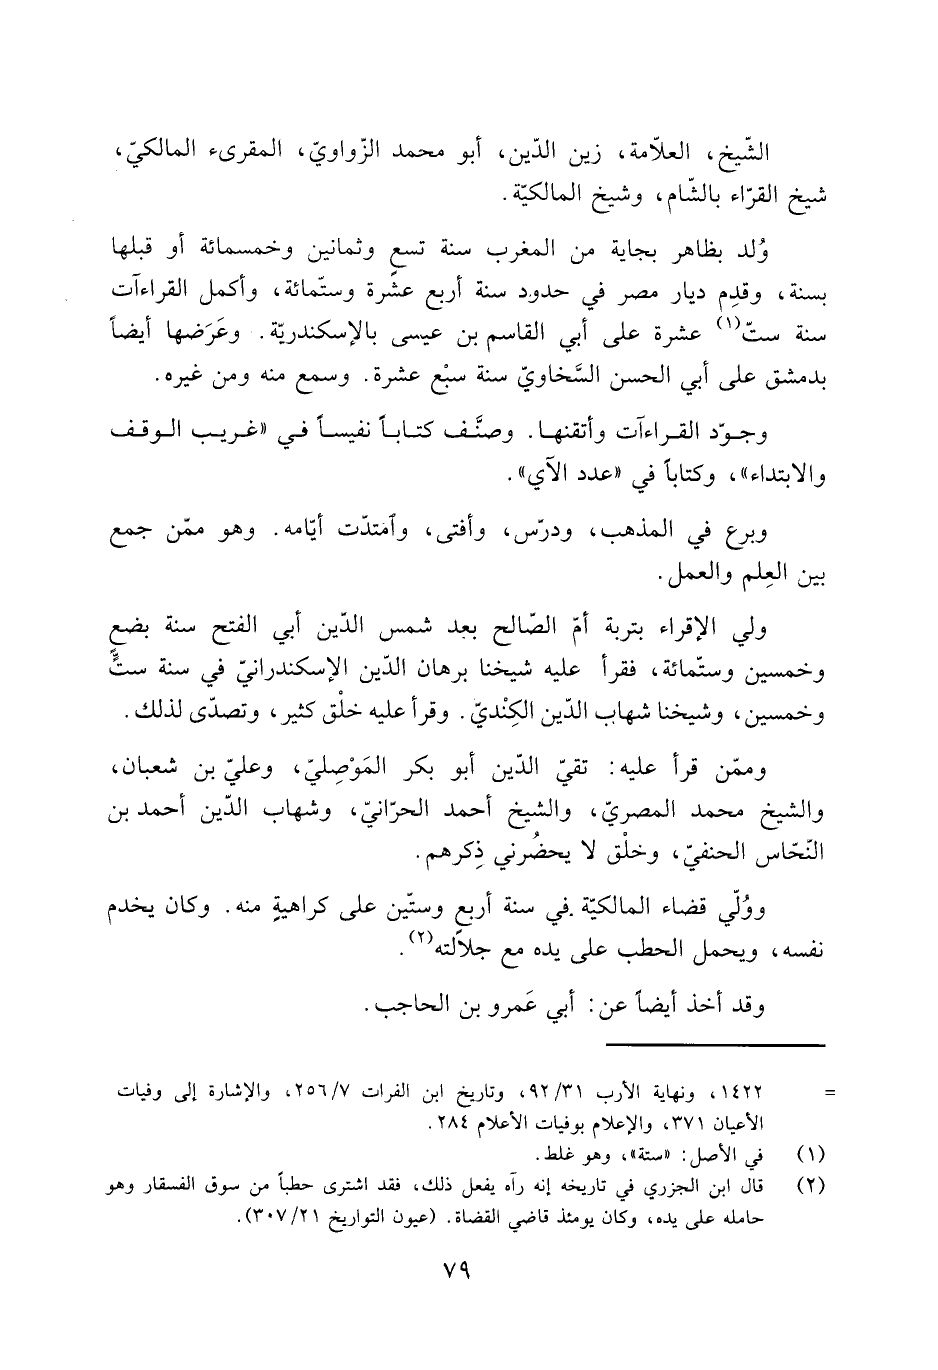 الشّيخ، العلاّمة، زين الدّين، أبو محمد الزّواويّ، المقرىء المالكيّ،
شيخ القرّاء بالشّام، وشيخ المالكيّة.
وُلد بظاهر بجاية من المغرب سنة تسعٍ وثمانين وخمسمائة أو قبلها
بسنة، وقدِم ديار مصر في حدود سنة أربع عشْرة وستّمائة، وأكمل القراءآت
سنة ستّ(١) عشرة على أبي القاسم بن عيسى بالإسكندريّة. وعَرَضها أيضاً
بدمشق على أبي الحسن السَّخاويّ سنة سبْع عشرة. وسمع منه ومن غيره.
وجوّد القراءآت وأتقنها. وصنَّف كتاباً نفيساً في «غريب الوقف
والابتداء»، وكتاباً في «عدد الآي».
وبرع في المذهب، ودرّس، وأفتى، وٱمتدّت أيّامه. وهو ممّن جمع
بين العِلم والعمل.
ولي الإقراء بتربة أمّ الصّالح بعد شمس الدّين أبي الفتح سنة بضعٍ
وخمسين وستّمائة، فقرأ عليه شيخنا برهان الدّين الإسكندرانيّ في سنة ستٍّ
وخمسين، وشيخنا شهاب الدّين الكِنْديّ. وقرأ عليه خلْق كثير، وتصدّى لذلك.
وممّن قرأ عليه: تقيّ الدّين أبو بكر المَوْصِليّ، وعليّ بن شعبان،
والشيخ محمد المصريّ، والشيخ أحمد الحرّانيّ، وشهاب الدّين أحمد بن
النّحّاس الحنفيّ، وخلْق لا يحضُرني ذِكرهم.
ووُلّي قضاء المالكيّة في سنة أربع وستّين على كراهيةٍ منه. وكان يخدم
نفسه، ويحمل الحطب على يده مع جلالته(٢).
وقد أخذ أيضاً عن: أبي عَمرو بن الحاجب.
= ١٤٢٢، ونهاية الأرب ٩٢/٣١، وتاريخ ابن الفرات ٢٥٦/٧، والإشارة إلى وفيات
الأعيان ٣٧١، والإعلام بوفيات الأعلام ٢٨٤.
(١) في الأصل: «ستة»، وهو غلط.
(٢) قال ابن الجزري في تاريخه إنه رآه يفعل ذلك، فقد اشترى حطباً من سوق الفسقار وهو
حامله على يده، وكان يومئذ قاضي القضاة. (عيون التواريخ ٣٠٧/٢١).
٧٩